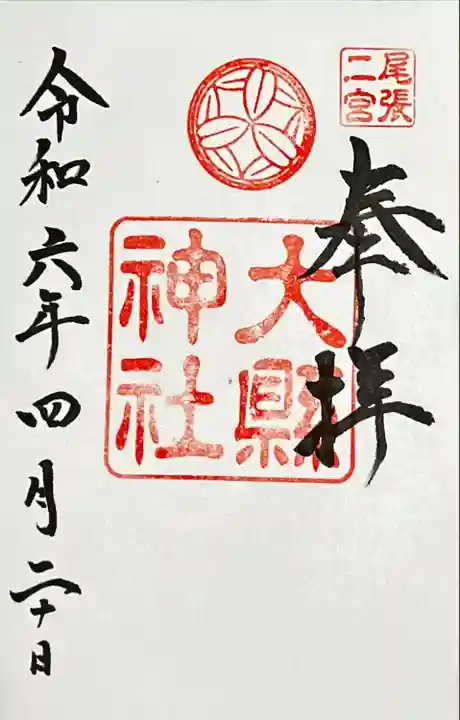 尾張
二宮
奉拝
大縣
神社
令和六年四月二十日